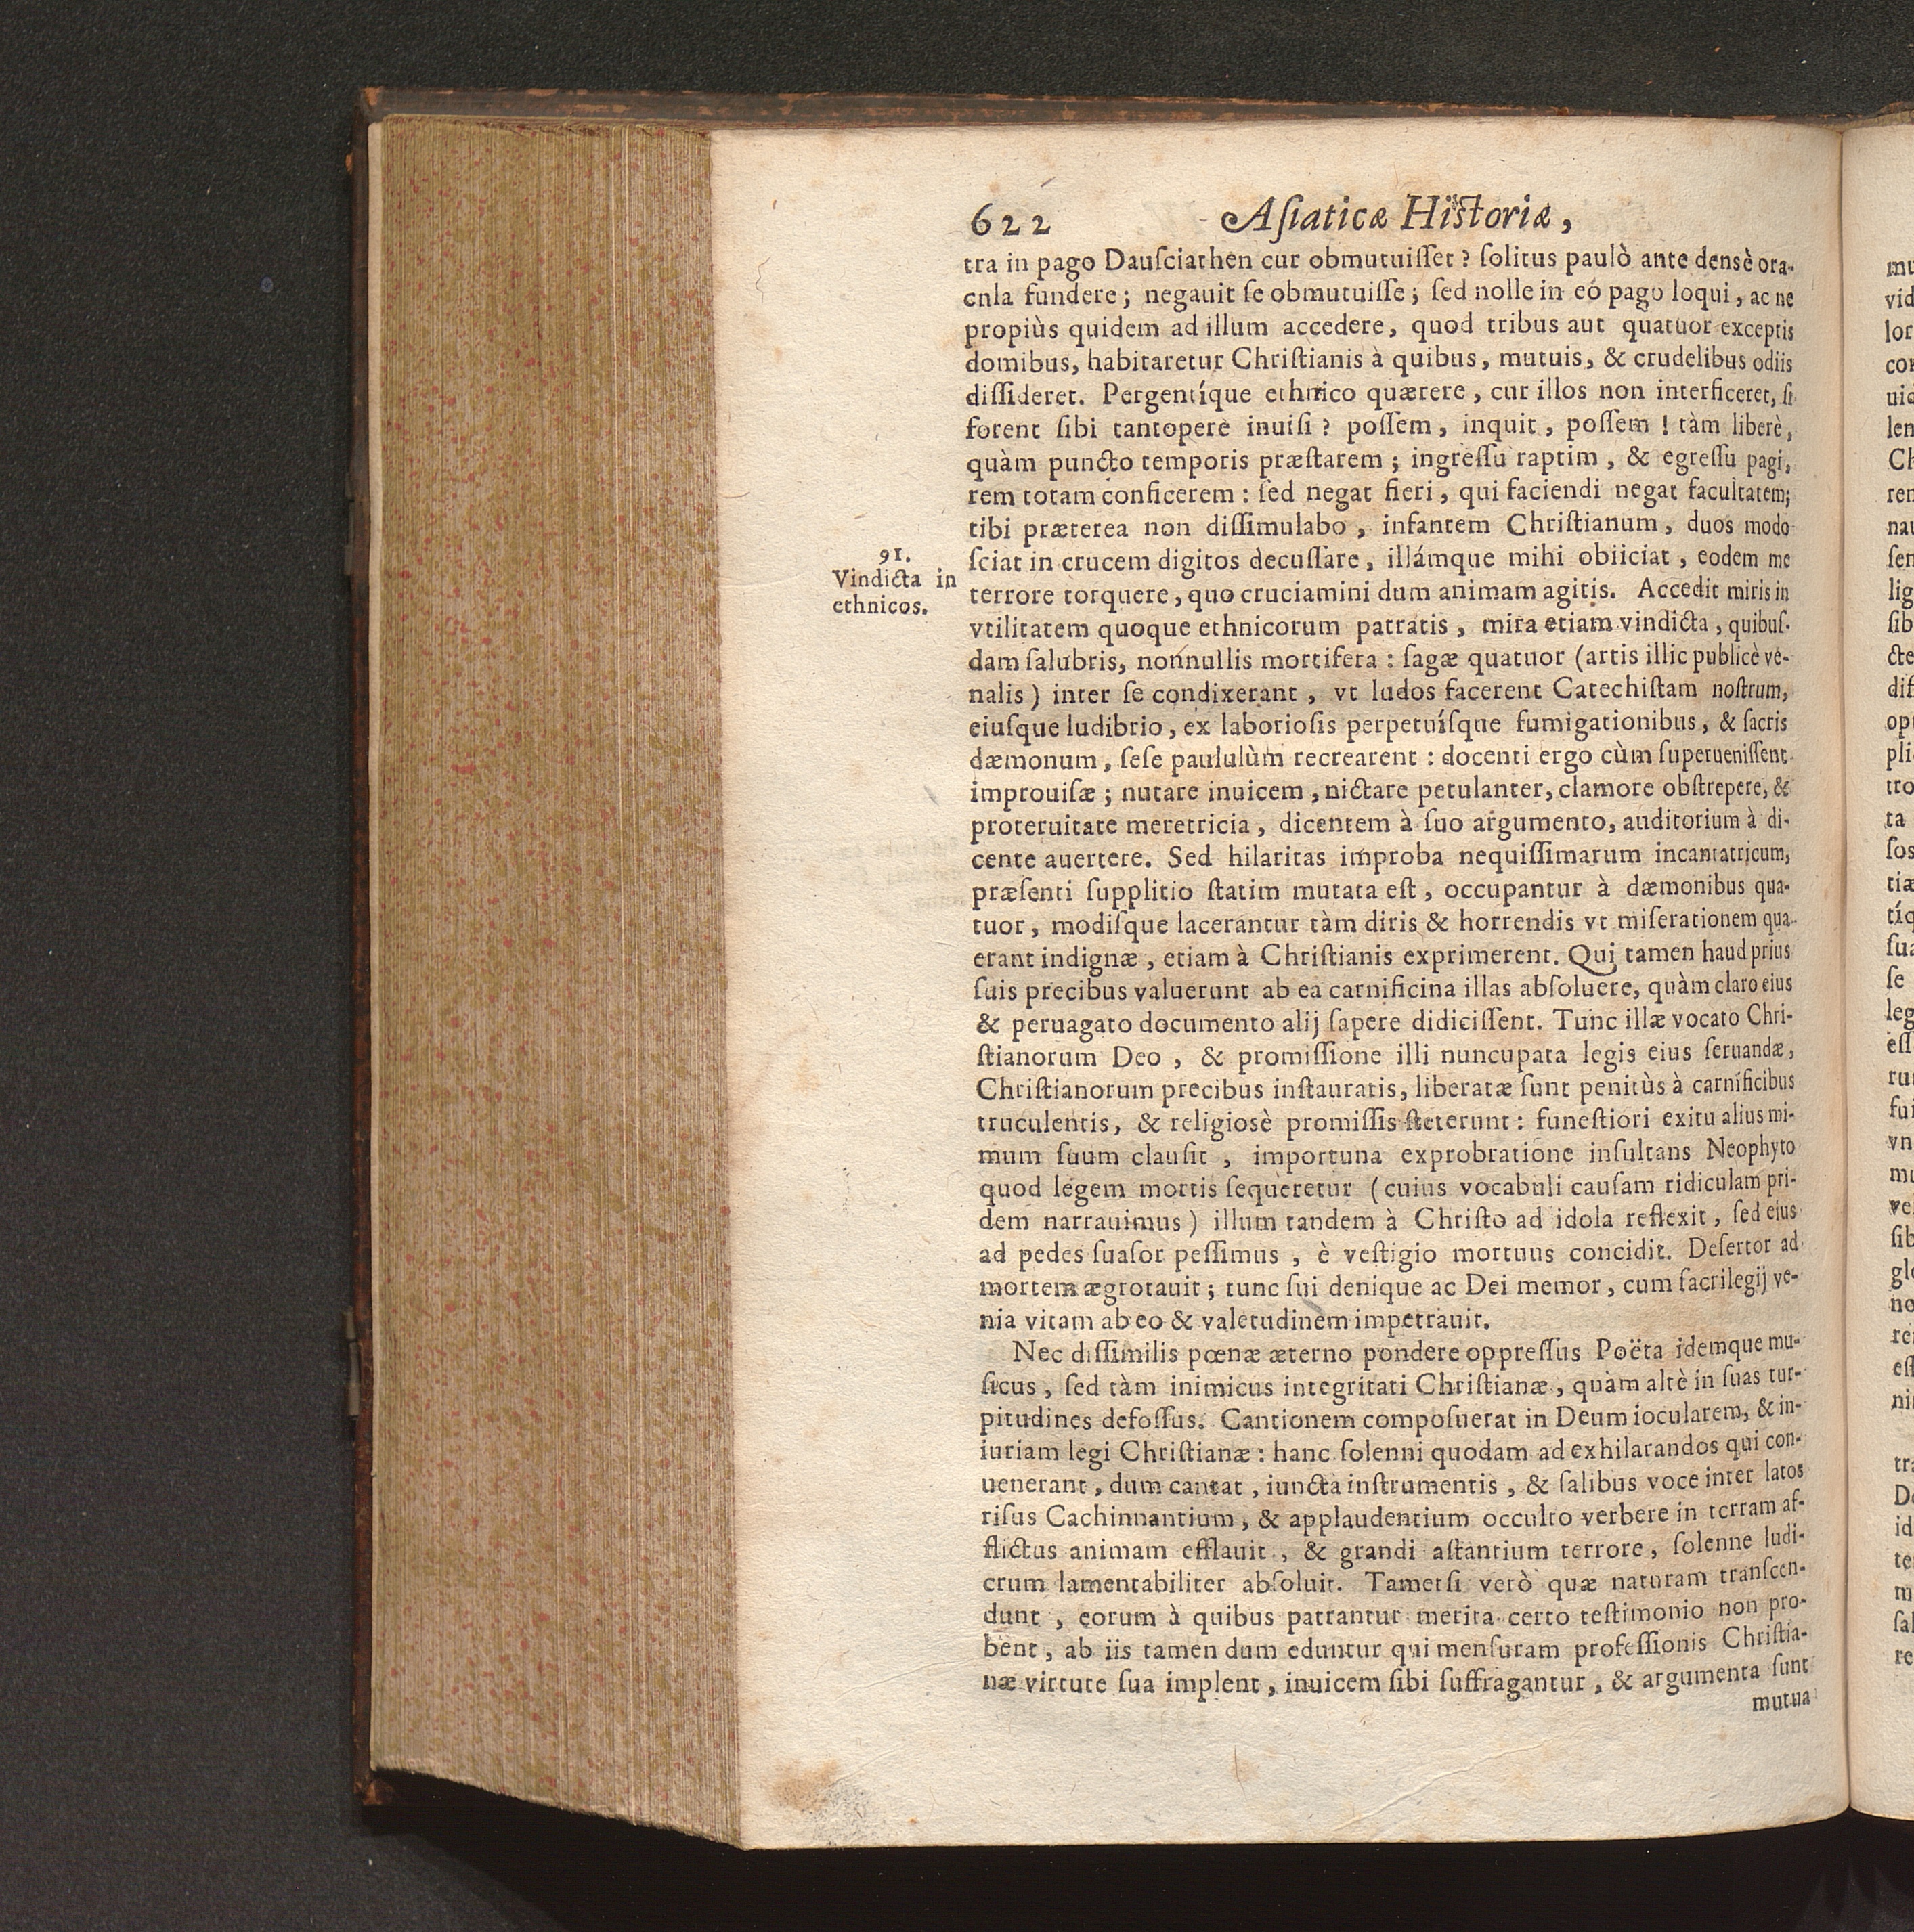 622 Asiaticæ Historiæ,
tra in pago Dauſciathen cur obmutuiſſet? ſolitus paulò ante densè ora-
cnla fundere; negauit ſe obmutuiſſe; ſed nolle in eo pago loqui, ac ne
propiùs quidem ad illum accedere, quod tribus aut quatuor exceptis
domibus, habitaretur Chriſtianis à quibus, mutuis, & crudelibus odiis
diſſideret. Pergentíque ethnico quærere, cur illos non interficeret, ſi
forent ſibi tantoperè inuiſi? poſſem, inquit, poſſem! tàm liberè,
quàm puncto temporis præſtarem; ingreſſu raptim, & egreſſu pagi,
rem totam conficerem: ſed negat fieri, qui faciendi negat facultatem;
tibi præterea non diſſimulabo, infantem Chriſtianum, duos modo
91.
Vindicta in
ethnicos.
ſciat in crucem digitos decuſſare, illámque mihi obiiciat, eodem me
terrore torquere, quo cruciamini dum animam agitis. Accedit miris in
vtilitatem quoque ethnicorum patratis, mira etiam vindicta, quibuſ-
dam ſalubris, nonnullis mortifera: ſagæ quatuor (artis illic publicè ve-
nalis) inter ſe condixerant, vt ludos facerent Catechiſtam noſtrum,
eiuſque ludibrio, ex laborioſis perpetuíſque fumigationibus, & ſacris
dæmonum, ſeſe paululùm recrearent: docenti ergo cùm ſuperueniſſent
improuiſæ; nutare inuicem, nictare petulanter, clamore obſtrepere, &
proteruitate meretricia, dicentem à ſuo argumento, auditorium à di-
cente auertere. Sed hilaritas improba nequiſſimarum incantatricum,
præſenti ſupplitio ſtatim mutata eſt, occupantur à dæmonibus qua-
tuor, modiſque lacerantur tàm diris & horrendis vt miſerationem qua
erant indignæ, etiam à Chriſtianis exprimerent. Qui tamen haud prius
ſuis precibus valuerunt ab ea carnificina illas abſoluere, quàm claro eius
& peruagato documento alij ſapere didiciſſent. Tunc illæ vocato Chri-
ſtianorum Deo, & promiſſione illi nuncupata legis eius ſeruandæ,
Chriſtianorum precibus inſtauratis, liberatæ ſunt penitùs à carnificibus
truculentis, & religiosè promiſſis ſteterunt: funeſtiori exitu alius mi-
mum ſuum clauſit, importuna exprobratione inſultans Neophyto
quod legem mortis ſequeretur (cuius vocabuli cauſam ridiculam pri-
dem narrauimus) illum tandem à Chriſto ad idola reflexit, ſed eius
ad pedes ſuaſor peſſimus, è veſtigio mortuus concidit. Deſertor ad
mortem ægrotauit; tunc ſui denique ac Dei memor, cum ſacrilegij ve-
nia vitam ab eo & valetudinem impetrauit.
Nec diſſimilis pœnæ æterno pondere oppreſſus Poëta idemque mu-
ſicus, ſed tàm inimicus integritati Chriſtianæ, quàm altè in ſuas tur-
pitudines defoſſus. Cantionem compoſuerat in Deum iocularem, & in-
iuriam legi Chriſtianæ: hanc ſolenni quodam ad exhilarandos qui con-
uenerant, dum cantat, iuncta inſtrumentis, & ſalibus voce inter latos
riſus Cachinnantium, & applaudentium occulto verbere in terram af-
flictus animam efflauit, & grandi aſtantium terrore, ſolenne ludi-
crum lamentabiliter abſoluit. Tametſi verò quæ naturam tranſcen-
dunt, eorum à quibus patrantur merita certo teſtimonio non pro-
bent, ab iis tamen dum eduntur qui menſuram profeſſionis Chriſtia-
næ virtute ſua implent, inuicem ſibi ſuffragantur, & argumenta ſunt
mutua